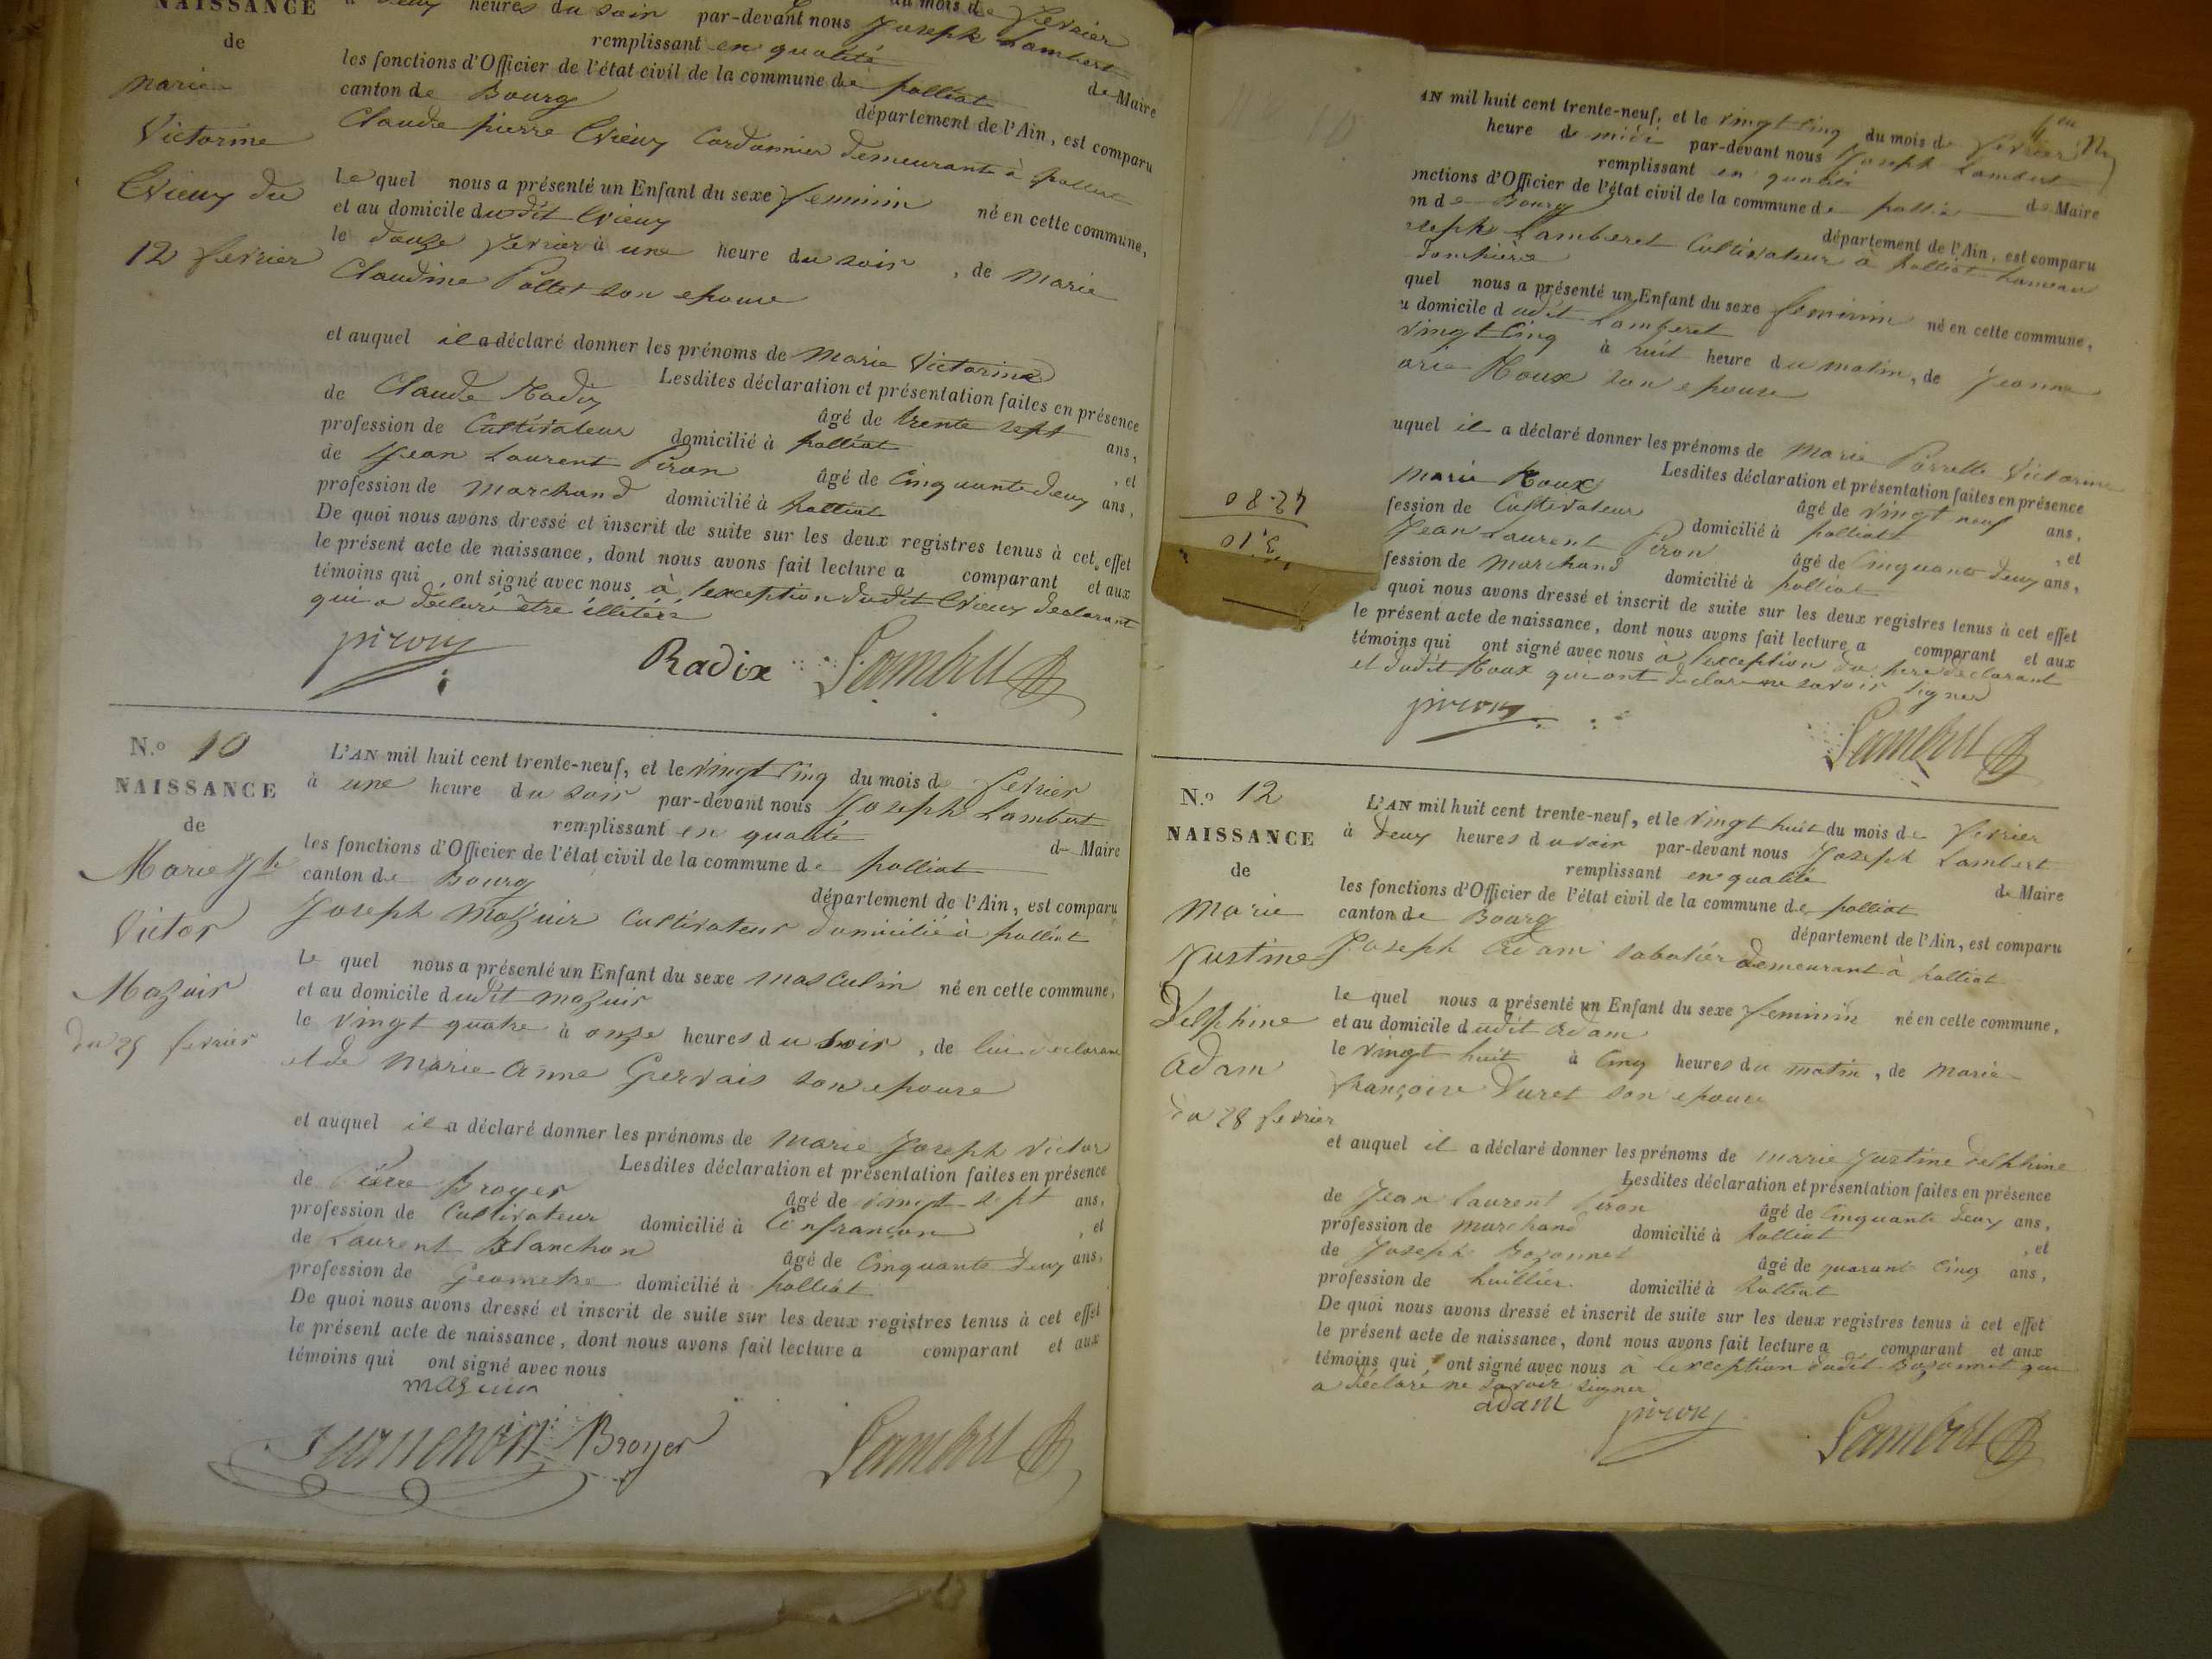 NAISSANCE
de
Marie
Victorine
Crieux du
12 fevrier
à deux heures du soir par-devant nous Joseph Lambert
remplissant en qualité de Maire
les fonctions d'Officier de l'état civil de la commune de polliat
canton de Bourg département de l'Ain, est comparu
Claude pierre Crieux Cordonnier demeurant à polliat
Le quel nous a présenté un Enfant du sexe feminin né en cette commune,
et au domicile dudit Crieux
le douze fevrier à une heure du soir, de Marie
Claudine Pollet son epouse
et auquel il a déclaré donner les prénoms de Marie Victorine
Lesdites déclaration et présentation faites en présence
de Claude Radix âgé de trente sept ans,
profession de Cultivateur domicilié à polliat, et
de Jean Laurent Piron âgé de Cinquante deux ans,
profession de Marchand domicilié à polliat
De quoi nous avons dressé et inscrit de suite sur les deux registres tenus à cet effet
le présent acte de naissance, dont nous avons fait lecture a comparant et aux
témoins qui ont signé avec nous à l'exception dudit Crieux declarant
qui a déclaré être illiteré
piron Radix Lambert
N.o 10
NAISSANCE
de
Marie Jph
Victor
Mazuir
du 25 fevrier
L'AN mil huit cent trente-neuf, et le vingt Cinq du mois de fevrier
à une heure du soir par-devant nous Joseph Lambert
remplissant en qualité de Maire
les fonctions d'Officier de l'état civil de la commune de polliat
canton de Bourg département de l'Ain, est comparu
Joseph Mazuir Cultivateur domicilié à polliat
Le quel nous a présenté un Enfant du sexe masculin né en cette commune,
et au domicile dudit mazuir
le vingt quatre à onze heures du soir, de lui declarant
et de Marie Anne Gervais son epouse
et auquel il a déclaré donner les prénoms de Marie Joseph Victor
Lesdites déclaration et présentation faites en présence
de Pierre Broyer âgé de vingt-sept ans,
profession de Cultivateur domicilié à Confrançon, et
de Laurent Blanchon âgé de Cinquante deux ans,
profession de Geometre domicilié à polliat
De quoi nous avons dressé et inscrit de suite sur les deux registres tenus à cet effet
le présent acte de naissance, dont nous avons fait lecture a comparant et aux
témoins qui ont signé avec nous
mazuir
Broyer Lambert
AN mil huit cent trente-neuf, et le vingt Cinq du mois de fevrier
heure de midi par-devant nous Joseph Lambert
remplissant en qualité de Maire
onctions d'Officier de l'état civil de la commune de polliat
on de Bourg département de l'Ain, est comparu
seph Lamberet Cultivateur à polliat hameau
dompière
quel nous a présenté un Enfant du sexe feminin né en cette commune,
u domicile dudit Lamberet
vingt Cinq à huit heure du matin, de Jeanne
arie Roux son epouse
uquel il a déclaré donner les prénoms de Marie Pierrette Victorine
Lesdites déclaration et présentation faites en présence
Marie Roux âgé de vingt neuf ans,
fession de Cultivateur domicilié à polliat, et
Jean Laurent Piron âgé de Cinquante deux ans,
fession de Marchand domicilié à polliat
quoi nous avons dressé et inscrit de suite sur les deux registres tenus à cet effet
le présent acte de naissance, dont nous avons fait lecture a comparant et aux
témoins qui ont signé avec nous à l'exception du pere declarant
et dudit Roux qui ont declaré ne savoir signer
piron Lambert
42.80
N.o 12
NAISSANCE
de
Marie
Justine
Delphine
Adam
du 28 fevrier
L'AN mil huit cent trente-neuf, et le vingt huit du mois de fevrier
à deux heures du soir par-devant nous Joseph Lambert
remplissant en qualité de Maire
les fonctions d'Officier de l'état civil de la commune de polliat
canton de Bourg département de l'Ain, est comparu
Joseph Adam sabotier demeurant à polliat
le quel nous a présenté un Enfant du sexe feminin né en cette commune,
et au domicile dudit Adam
le vingt huit à Cinq heures du matin, de Marie
françoise Duret son epouse
et auquel il a déclaré donner les prénoms de marie Justine delphine
Lesdites déclaration et présentation faites en présence
de Jean laurent Piron âgé de Cinquante deux ans,
profession de Marchand domicilié à Polliat, et
de Joseph Bozonnet âgé de quarante Cinq ans,
profession de huillier domicilié à Polliat
De quoi nous avons dressé et inscrit de suite sur les deux registres tenus à cet effet
le présent acte de naissance, dont nous avons fait lecture a comparant et aux
témoins qui ont signé avec nous à l'exception dudit Bozonnet qui
a déclaré ne savoir signer
adam piron Lambert